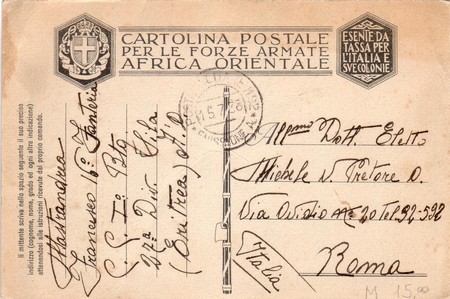 CARTOLINA POSTALE
PER LE FORZE ARMATE
AFRICA ORIENTALE
ESENTE DA
TASSA PER
L'ITALIA E
SVE COLONIE
Il mittente scriva nello spazio seguente il suo preciso
indirizzo (cognome, nome, grado ed ogni altra indicazione)
attenendosi alle istruzioni ricevute dal proprio comando.
Mastrandrea
Francesco 16° Fanteria
C.G. I° Btg
27a Div. Sila
(Eritrea) A.O.
Dott.
Michele
Via Ovidio 20 Tel 32-532
Roma
Italia
M 15,00